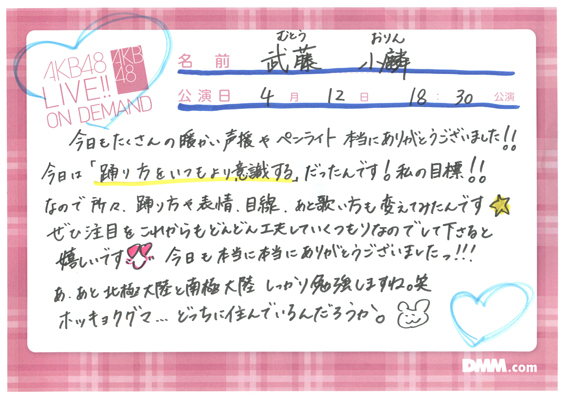 AKB48
LIVE!!
ON DEMAND
AKB
48
むとう おりん
名前 武藤 小麟
公演日 4月 12日 18:30 公演
今日もたくさんの暖かい声援やペンライト本当にありがとうございました!!
今日は「踊り方をいつもより意識する」だったんです!私の目標!!
なので所々、踊り方や表情、目線、あと歌い方も変えてみたんです
ぜひ注目をこれからもどんどん工夫していくつもりなのでして下さると
嬉しいです 今日も本当に本当にありがとうございましたっ!!!
あ、あと北極大陸と南極大陸しっかり勉強しますね。笑
ホッキョクグマ...どっちに住んでいるんだろうか。
DMM.com